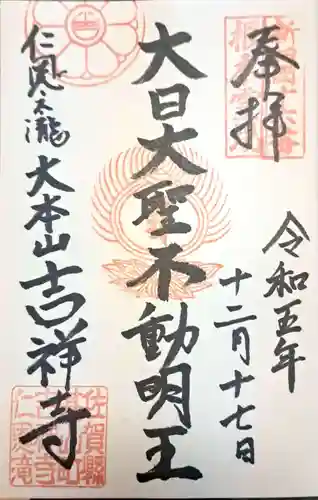 奉拝
令和五年
十二月十七日
大日大聖不動明王
仁恩大瀧
大本山吉祥寺
佐賀縣